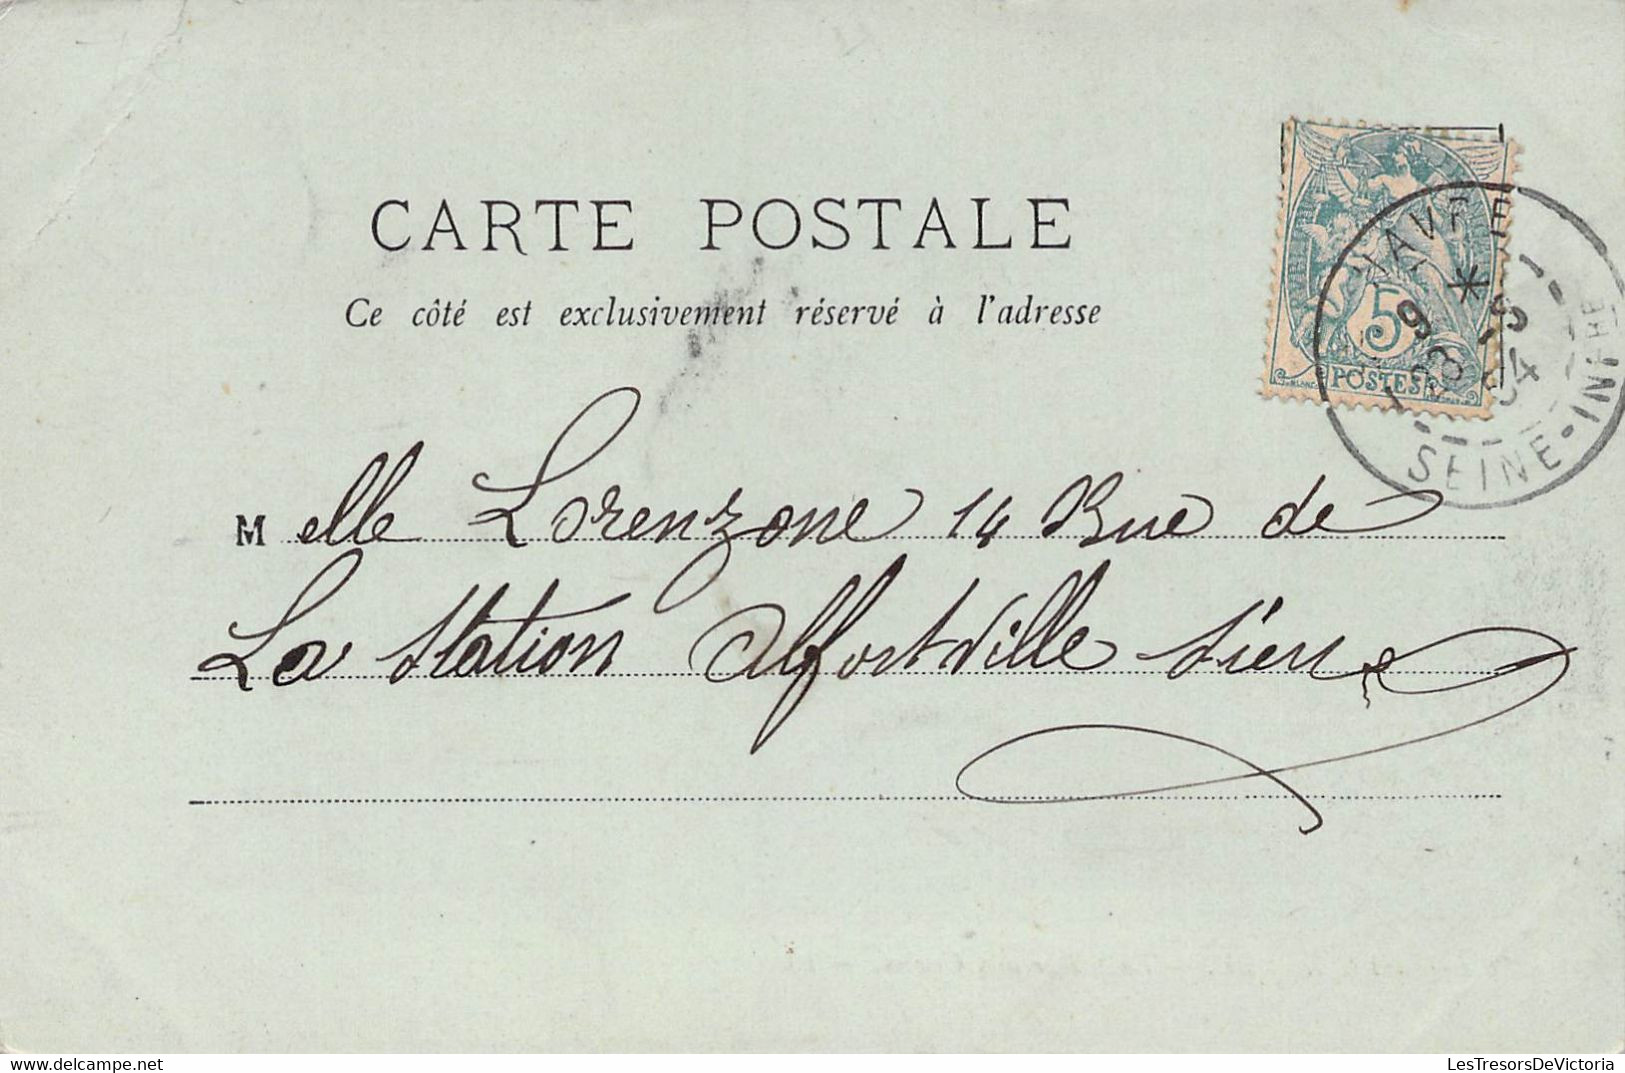 CARTE POSTALE
Ce côté est exclusivement réservé à l'adresse
5
POSTES
HAVRE
SEINE-INFRE
M elle Lorenzone 14 Rue de
La Station Alfortville
LesTresorsDeVictoria